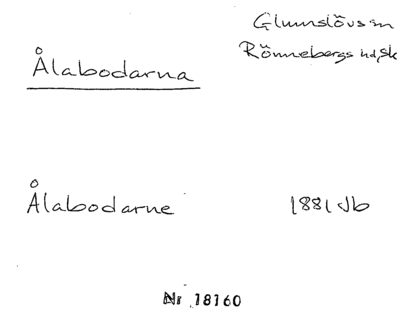 Glumslövs sn
Rönnebergs hd, Sk
Ålabodarna
Ålabodarne 1881 Jb
Nr 18160